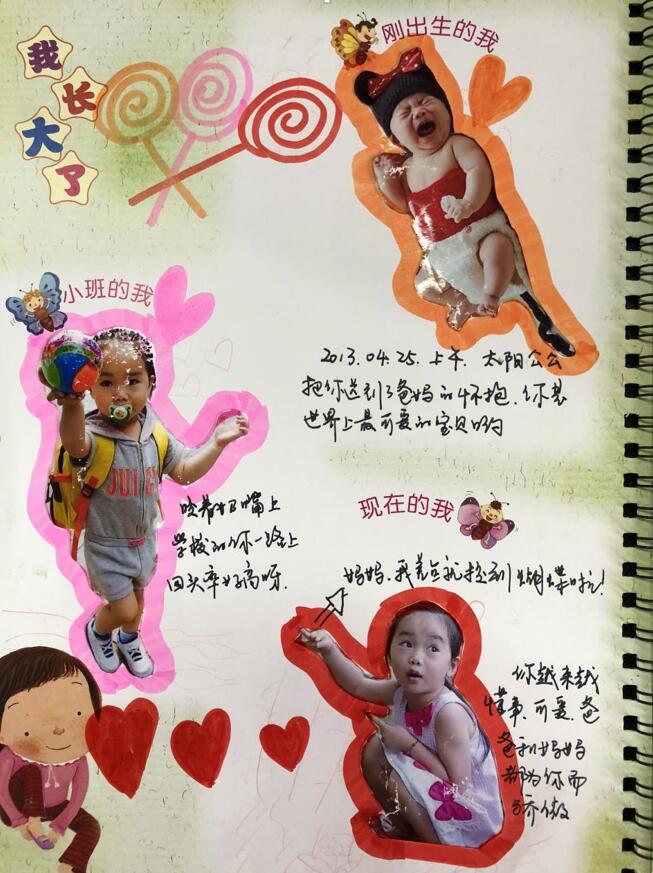 我长大了
刚出生的我
2013.04.25.上午.太阳公公
把你送到了爸妈的怀抱.你是
世界上最可爱的宝贝哟
小班的我
咬着奶嘴上
学校的你一路上
回头率好高呀.
现在的我
妈妈.我差点就抓到蝴蝶啦!
你越来越
懂事.可爱.爸
爸和妈妈
都为你而
骄傲